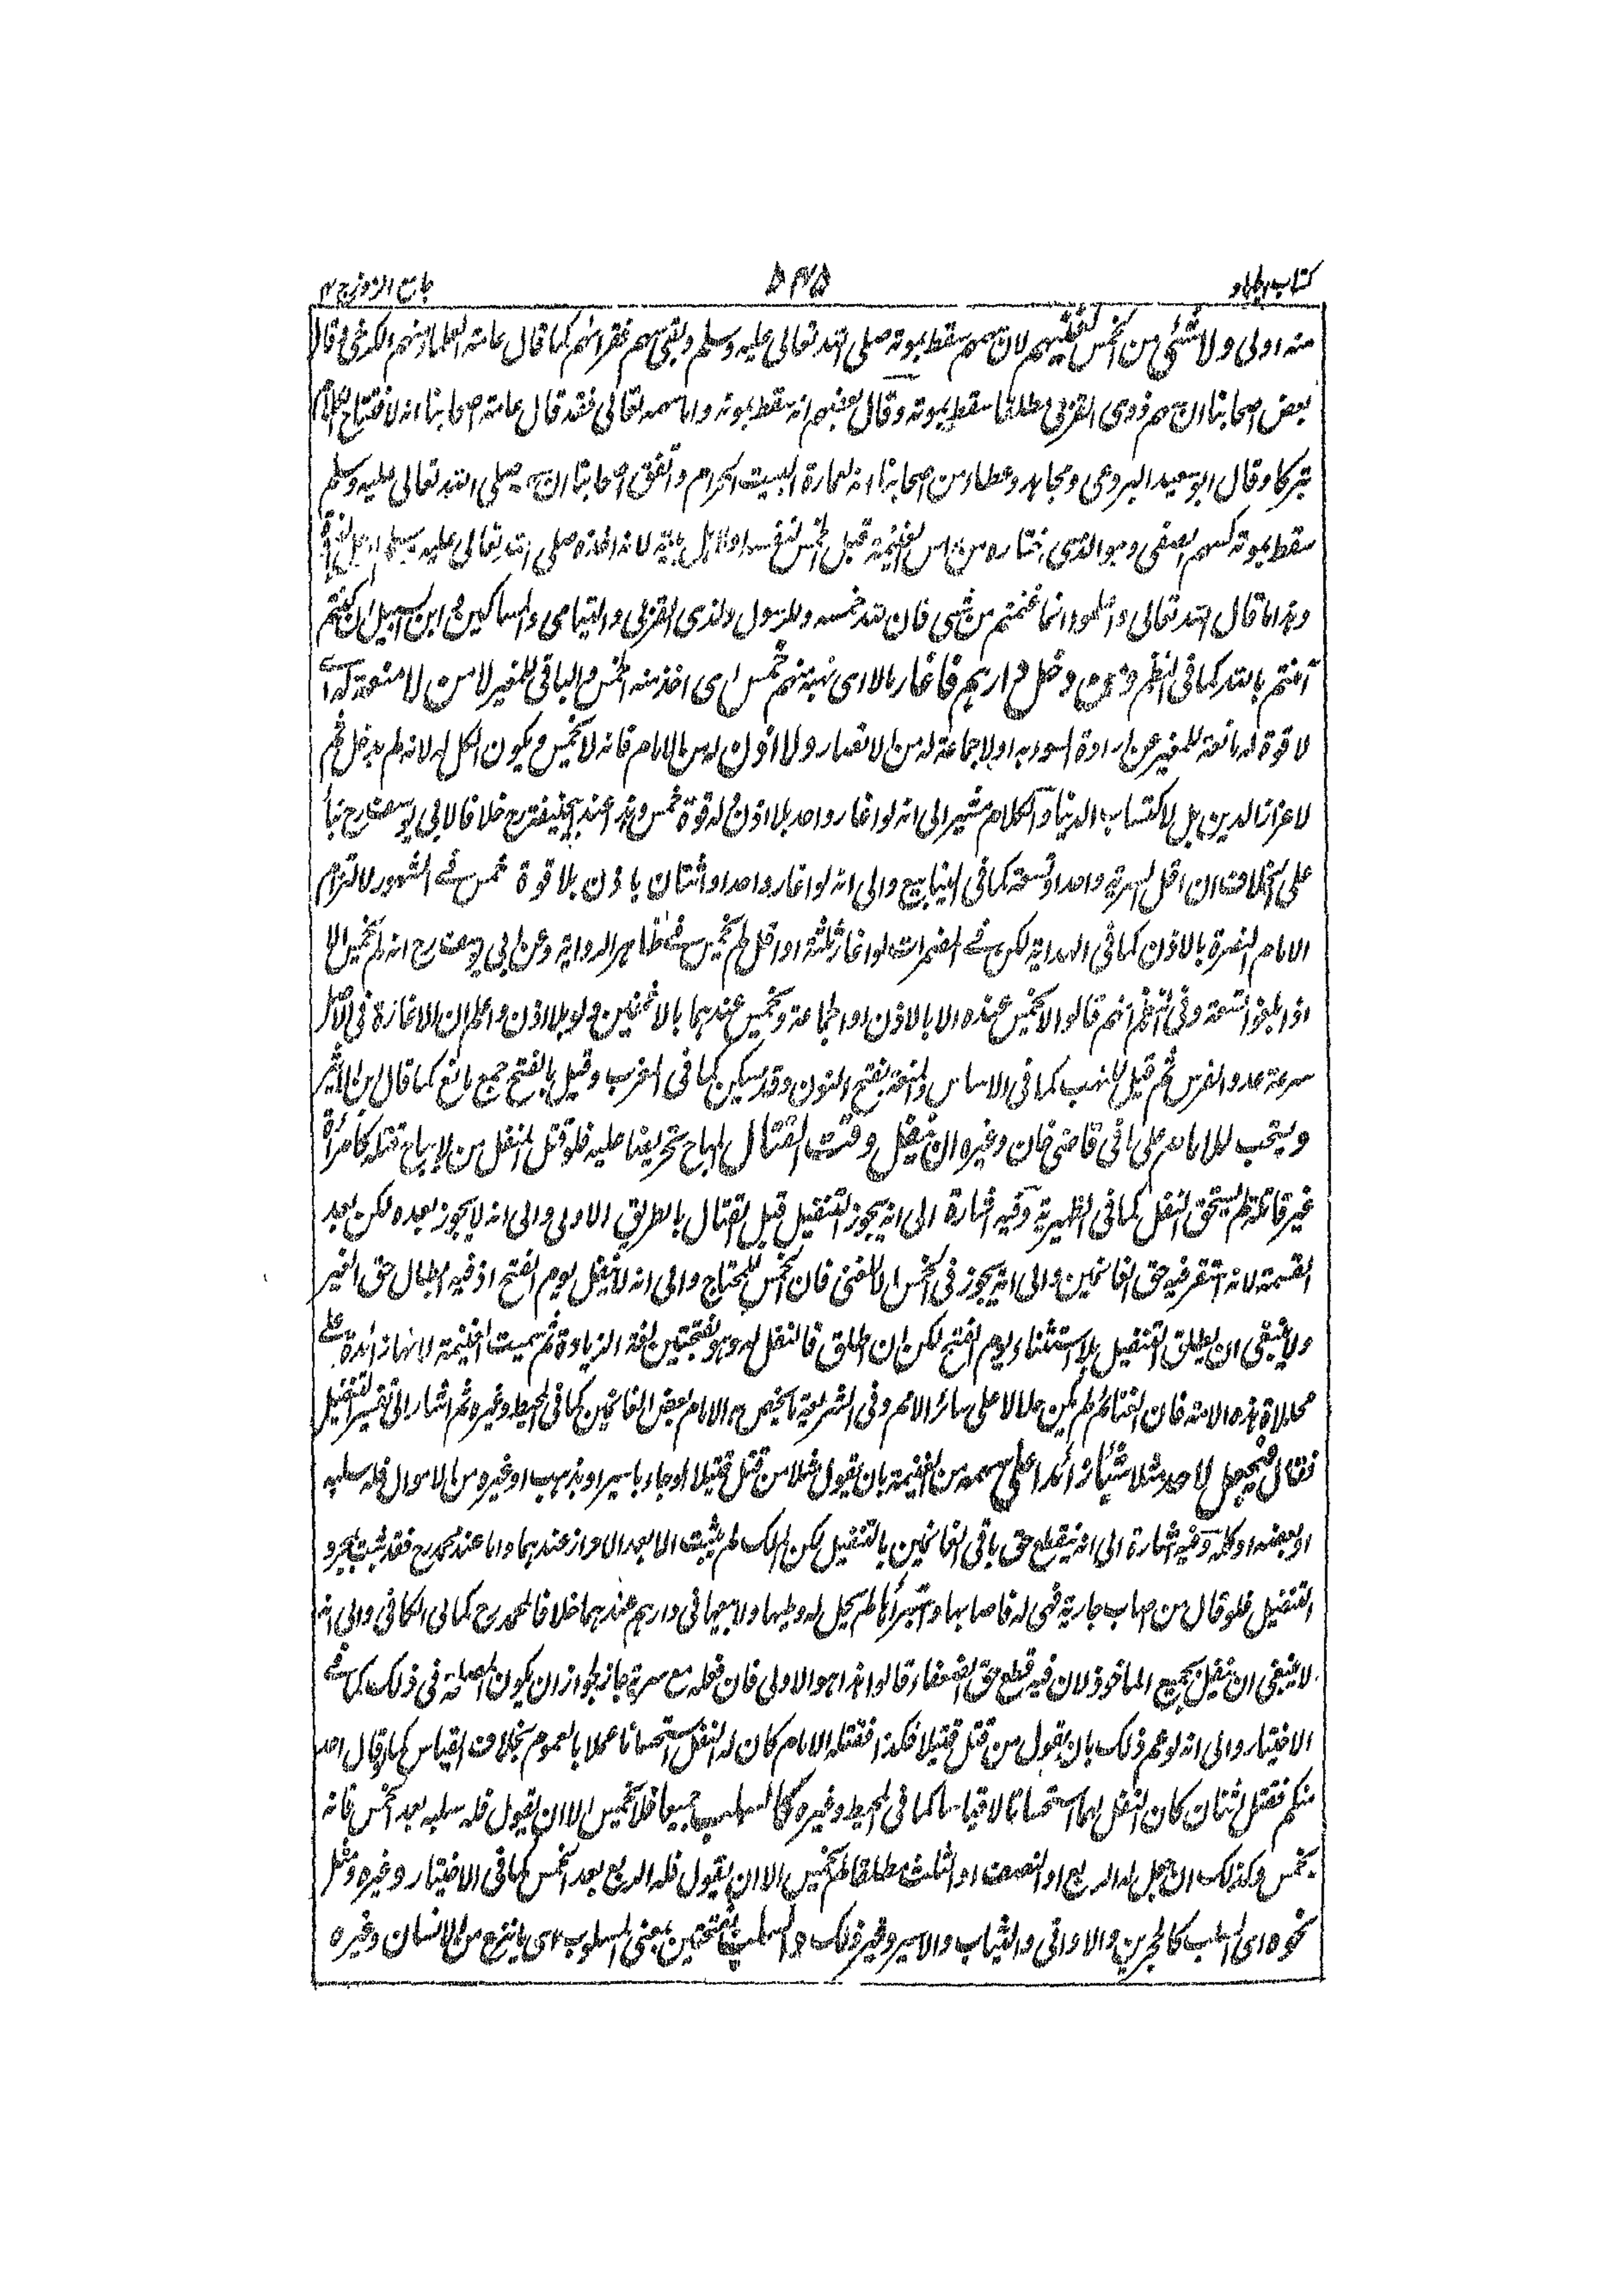 كتاب الجهاد
۵۴۵
منه اولى ولا شئ من الخمس لغنيهم لان سهمهم سقط بموته صلى الله تعالى عليه وسلم وبقى سهم فقرائهم كما قال عامة العلماء ومنهم الكرخى وقال
بعض اصحابنا ان سهم ذوى القربى مطلقا سقط بموته وقال بعضهم انه سقط بموته واما سهمه تعالى فقد قال عامة اصحابنا انه لافتتاح الكلام
تبركا وقال ابو سعيد البردعى ومجاهد وعطاء من اصحابنا انه لعمارة البيت الحرام واتفق اصحابنا ان سهمه صلى الله تعالى عليه وسلم
سقط بموته كسهم الصفى وهو الذى اختاره من راس الغنيمة قبل الخمس لنفسه او لاهل بيته لانه اخذه صلى الله تعالى عليه وسلم
وهذا ما قال الله تعالى واعلموا انما غنمتم من شئ فان لله خمسه وللرسول ولذى القربى واليتامى والمساكين وابن السبيل ان كنتم
آمنتم بالله كما فى النظم ومن دخل دارهم فاغار بالا اى نهبه منهم خمس اى اخذ منه الخمس والباقى للمغير لا من لا منعة له اى
لا قوة له مانعة للمغير عن ارادة السوء به او لا جماعة له من الانصار ولا اذن له من الامام فانه لا يخمس ويكون الكل له لانه لم يدخل ثم
لاعزاز الدين بل لاكتساب الدنيا والكلام مشير الى انه لو اغار واحد بلا اذن وله قوة خمس وهذا عند ابيحنيفة رح خلافا لابى يوسف رح بناء
على الخلاف ان اقل السرية واحد او تسعة كما فى الينابيع والى انه لو اغار واحد او اثنان باذن بلا قوة خمس فى المشهور لالتزام
الامام النصرة بالاذن كما فى الهداية لكن فى المضمرات لو اغار ثلثة او اقل لم يخمس فى ظاهر الرواية وعن ابى يوسف رح انه لم يخمس الا
اذا بلغوا تسعة وفى النظم انهم قالوا لا يخمس عنده الا بالاذن او الجماعة ويخمس عندهما بالاثنين ولو بلا اذن واعلم ان الاغارة فى الاصل
سرعة عدو الفرس ثم قيل للنهب كما فى الاساس والمنعة بفتح النون وقد يسكن كما فى المغرب وقيل بالفتح جمع مانع كما قال ابن الاثير
ويستحب للامام على ما فى قاضى خان وغيره ان ينفل وقت القتال المباح تحريضا عليه فلو قتل المنفل من لا يباح قتله كامرأة
غير قاتلة لم يستحق النفل كما فى الظهيرية وفيه اشارة الى انه يجوز التنفيل قبل القتال بالطريق الاولى والى انه لا يجوز بعده لكن بعد
القسمة لانه استقر فيه حق الغانمين والى انه يجوز فى الخمس الا للغنى فان الخمس للمحتاج والى انه لا ينفل يوم الفتح اذ فيه ابطال حق الغير
ولا ينبغى ان يطلق التنفيل بلا استثناء يوم الفتح لكن ان اطلق فالنفل له وهو بفتحتين لغة الزيادة ثم سميت الغنيمة لانها زائدة على
محللات هذه الامة فان الغنائم لم يكن حلالا على سائر الامم وفى الشريعة ما يخص به الامام بعض الغانمين كما فى المحيط وغيره ثم اشار الى تفسير التنفيل
فقال فيجعل لاحد مثلا شيئا زائدا على سهمه من الغنيمة بان يقول مثلا من قتل قتيلا او جاء باسير او بذهب او غيره من الاموال فله سلبه
او بعضه او كله وفيه اشارة الى انه ينقطع حق باقى الغانمين بالتنفيل لكن الملك لم يثبت الا بعد الاحراز عندهما واما عند محمد رح فقد يثبت بمجرد
التنفيل فلو قال من اصاب جارية فهى له فاصابها واستبرأها لم يحل له وطيها ولا بيعها فى دارهم عندهما خلافا لمحمد رح كما فى الكافى والى انه
لا ينبغى ان ينفل بجميع الماخوذ لان فيه قطع حق الضعفاء قالوا هذا هو الاولى فان فعله مع سرية جاز لجواز ان يكون المصلحة فى ذلك كما فى
الاختيار والى انه لو عم ذلك بان يقول من قتل قتيلا فكذا فقتله الامام كان له النفل استحسانا عملا بالعموم بخلاف القياس كما لو قال احد
منكم فقتل اثنان كان النفل لهما استحسانا لا قياسا كما فى المحيط وغيره كالسلب جميعا فلا يخمس الا ان يقول فله سلبه بعد الخمس فانه
يخمس وكذلك ان جعل له الربع او النصف او الثلث مطلقا لم يخمس الا ان يقول فله الربع بعد الخمس كما فى الاختيار وغيره ومثل
نحوه اى السلب كالحجرين والاوانى والثياب والاسير وغير ذلك والسلب بفتحتين بمعنى المسلوب اى ما ينزع من الانسان وغيره